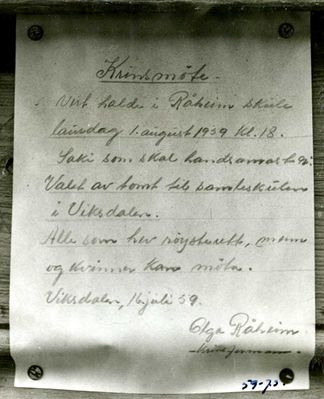 Krinsmöte.
Vert halde i Råheim skule
laurdag 1. august 1959 kl. 18.
Saki som skal handsamast er:
Valet av tomt til samleskulen
i Viksdalen.
Alle som hev röysterett, menn
og kvinner kan möta.
Viksdalen, 16 juli 59.
Olga Råheim
Krinsformann.
59-73.